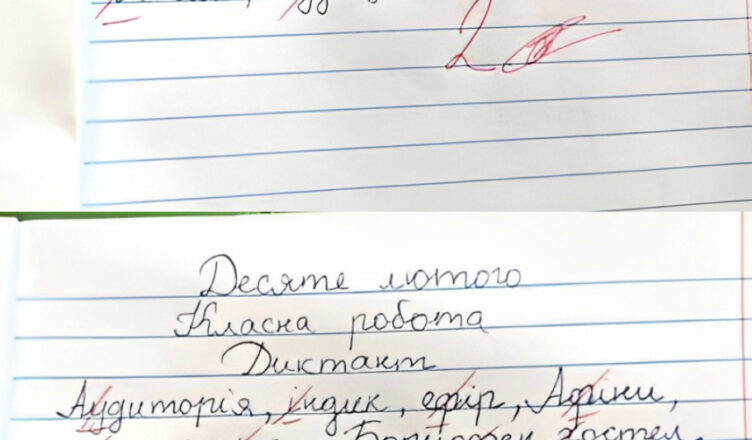 2
Десяте лютого
Класна робота
Диктант
Аудиторія, індик, ефір, Афіни,
хостел,